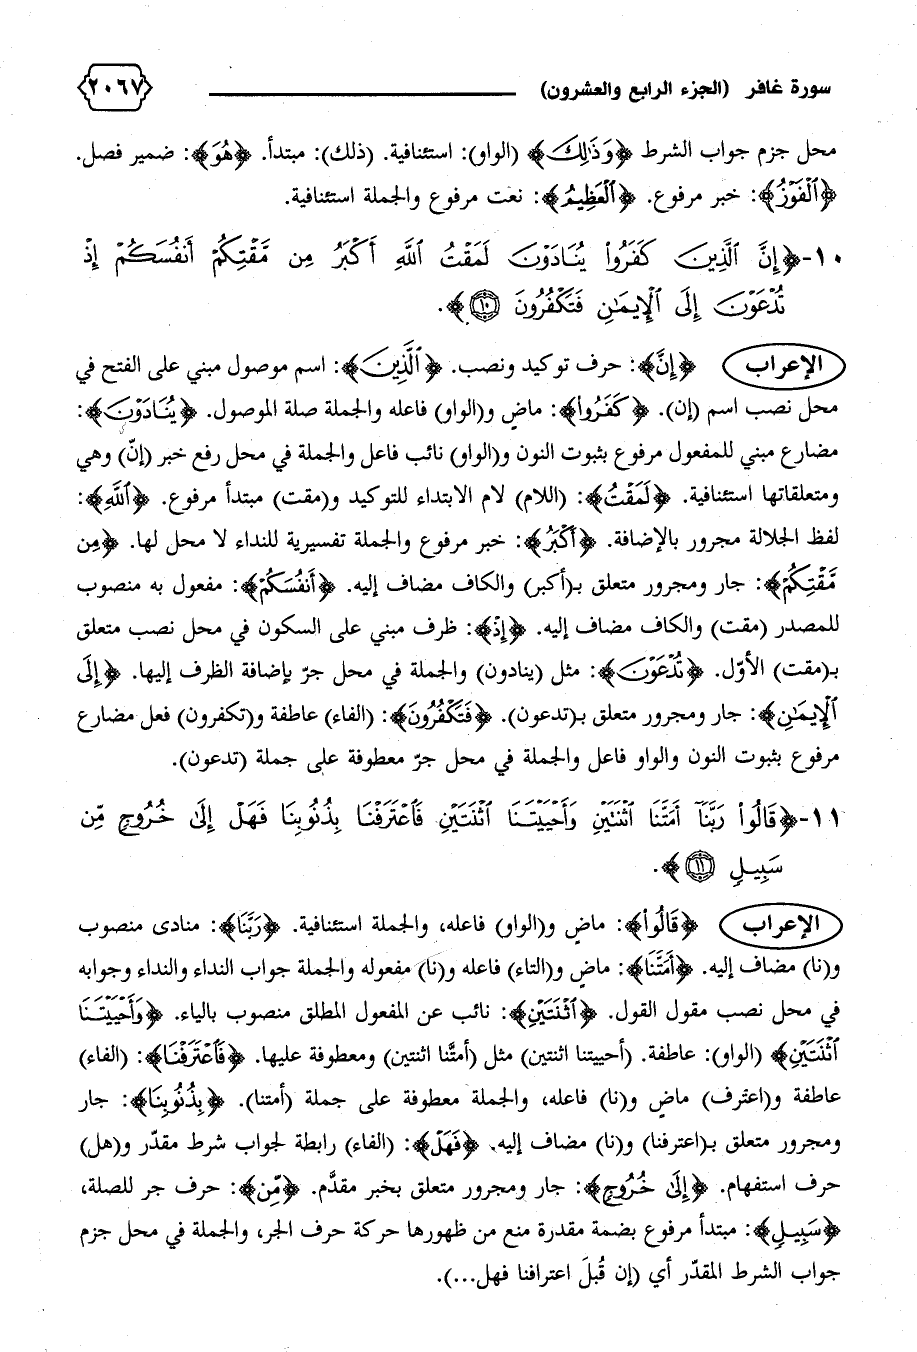 سورة غافر (الجزء الرابع والعشرون) ٢٠٦٧
محل جزم جواب الشرط ﴿وَذَٰلِكَ﴾ (الواو): استئنافية. (ذلك): مبتدأ. ﴿هُوَ﴾: ضمير فصل.
﴿ٱلْفَوْزُ﴾: خبر مرفوع. ﴿ٱلْعَظِيمُ﴾: نعت مرفوع والجملة استئنافية.
١٠-﴿إِنَّ ٱلَّذِينَ كَفَرُوا۟ يُنَادَوْنَ لَمَقْتُ ٱللَّهِ أَكْبَرُ مِن مَّقْتِكُمْ أَنفُسَكُمْ إِذْ
تُدْعَوْنَ إِلَى ٱلْإِيمَـٰنِ فَتَكْفُرُونَ ١٠﴾.
الإعراب ﴿إِنَّ﴾: حرف توكيد ونصب. ﴿ٱلَّذِينَ﴾: اسم موصول مبني على الفتح في
محل نصب اسم (إن). ﴿كَفَرُوا۟﴾: ماضٍ و(الواو) فاعله والجملة صلة الموصول. ﴿يُنَادَوْنَ﴾:
مضارع مبني للمفعول مرفوع بثبوت النون و(الواو) نائب فاعل والجملة في محل رفع خبر (إنّ) وهي
ومتعلقاتها استئنافية. ﴿لَمَقْتُ﴾: (اللام) لام الابتداء للتوكيد و(مقت) مبتدأ مرفوع. ﴿ٱللَّهِ﴾:
لفظ الجلالة مجرور بالإضافة. ﴿أَكْبَرُ﴾: خبر مرفوع والجملة تفسيرية للنداء لا محل لها. ﴿مِن
مَّقْتِكُمْ﴾: جار ومجرور متعلق بـ(أكبر) والكاف مضاف إليه. ﴿أَنفُسَكُمْ﴾: مفعول به منصوب
للمصدر (مقت) والكاف مضاف إليه. ﴿إِذْ﴾: ظرف مبني على السكون في محل نصب متعلق
بـ(مقت) الأوّل. ﴿تُدْعَوْنَ﴾: مثل (ينادون) والجملة في محل جرّ بإضافة الظرف إليها. ﴿إِلَى
ٱلْإِيمَـٰنِ﴾: جار ومجرور متعلق بـ(تدعون). ﴿فَتَكْفُرُونَ﴾: (الفاء) عاطفة و(تكفرون) فعل مضارع
مرفوع بثبوت النون والواو فاعل والجملة في محل جرّ معطوفة على جملة (تدعون).
١١-﴿قَالُوا۟ رَبَّنَآ أَمَتَّنَا ٱثْنَتَيْنِ وَأَحْيَيْتَنَا ٱثْنَتَيْنِ فَٱعْتَرَفْنَا بِذُنُوبِنَا فَهَلْ إِلَىٰ خُرُوجٍ مِّن
سَبِيلٍ ١١﴾.
الإعراب ﴿قَالُوا۟﴾: ماضٍ و(الواو) فاعله، والجملة استئنافية. ﴿رَبَّنَا﴾: منادى منصوب
و(نا) مضاف إليه. ﴿أَمَتَّنَا﴾: ماضٍ و(التاء) فاعله و(نا) مفعوله والجملة جواب النداء والنداء وجوابه
في محل نصب مقول القول. ﴿ٱثْنَتَيْنِ﴾: نائب عن المفعول المطلق منصوب بالياء. ﴿وَأَحْيَيْتَنَا
ٱثْنَتَيْنِ﴾ (الواو): عاطفة. (أحييتنا اثنتين) مثل (أمتَّنا اثنتين) ومعطوفة عليها. ﴿فَٱعْتَرَفْنَا﴾: (الفاء)
عاطفة و(اعترف) ماضٍ و(نا) فاعله، والجملة معطوفة على جملة (أمتنا). ﴿بِذُنُوبِنَا﴾: جار
ومجرور متعلق بـ(اعترفنا) و(نا) مضاف إليه. ﴿فَهَلْ﴾: (الفاء) رابطة لجواب شرط مقدّر و(هل)
حرف استفهام. ﴿إِلَىٰ خُرُوجٍ﴾: جار ومجرور متعلق بخبر مقدَّم. ﴿مِّن﴾: حرف جر للصلة،
﴿سَبِيلٍ﴾: مبتدأ مرفوع بضمة مقدرة منع من ظهورها حركة حرف الجر، والجملة في محل جزم
جواب الشرط المقدّر أي (إن قُبلَ اعترافنا فهل...).